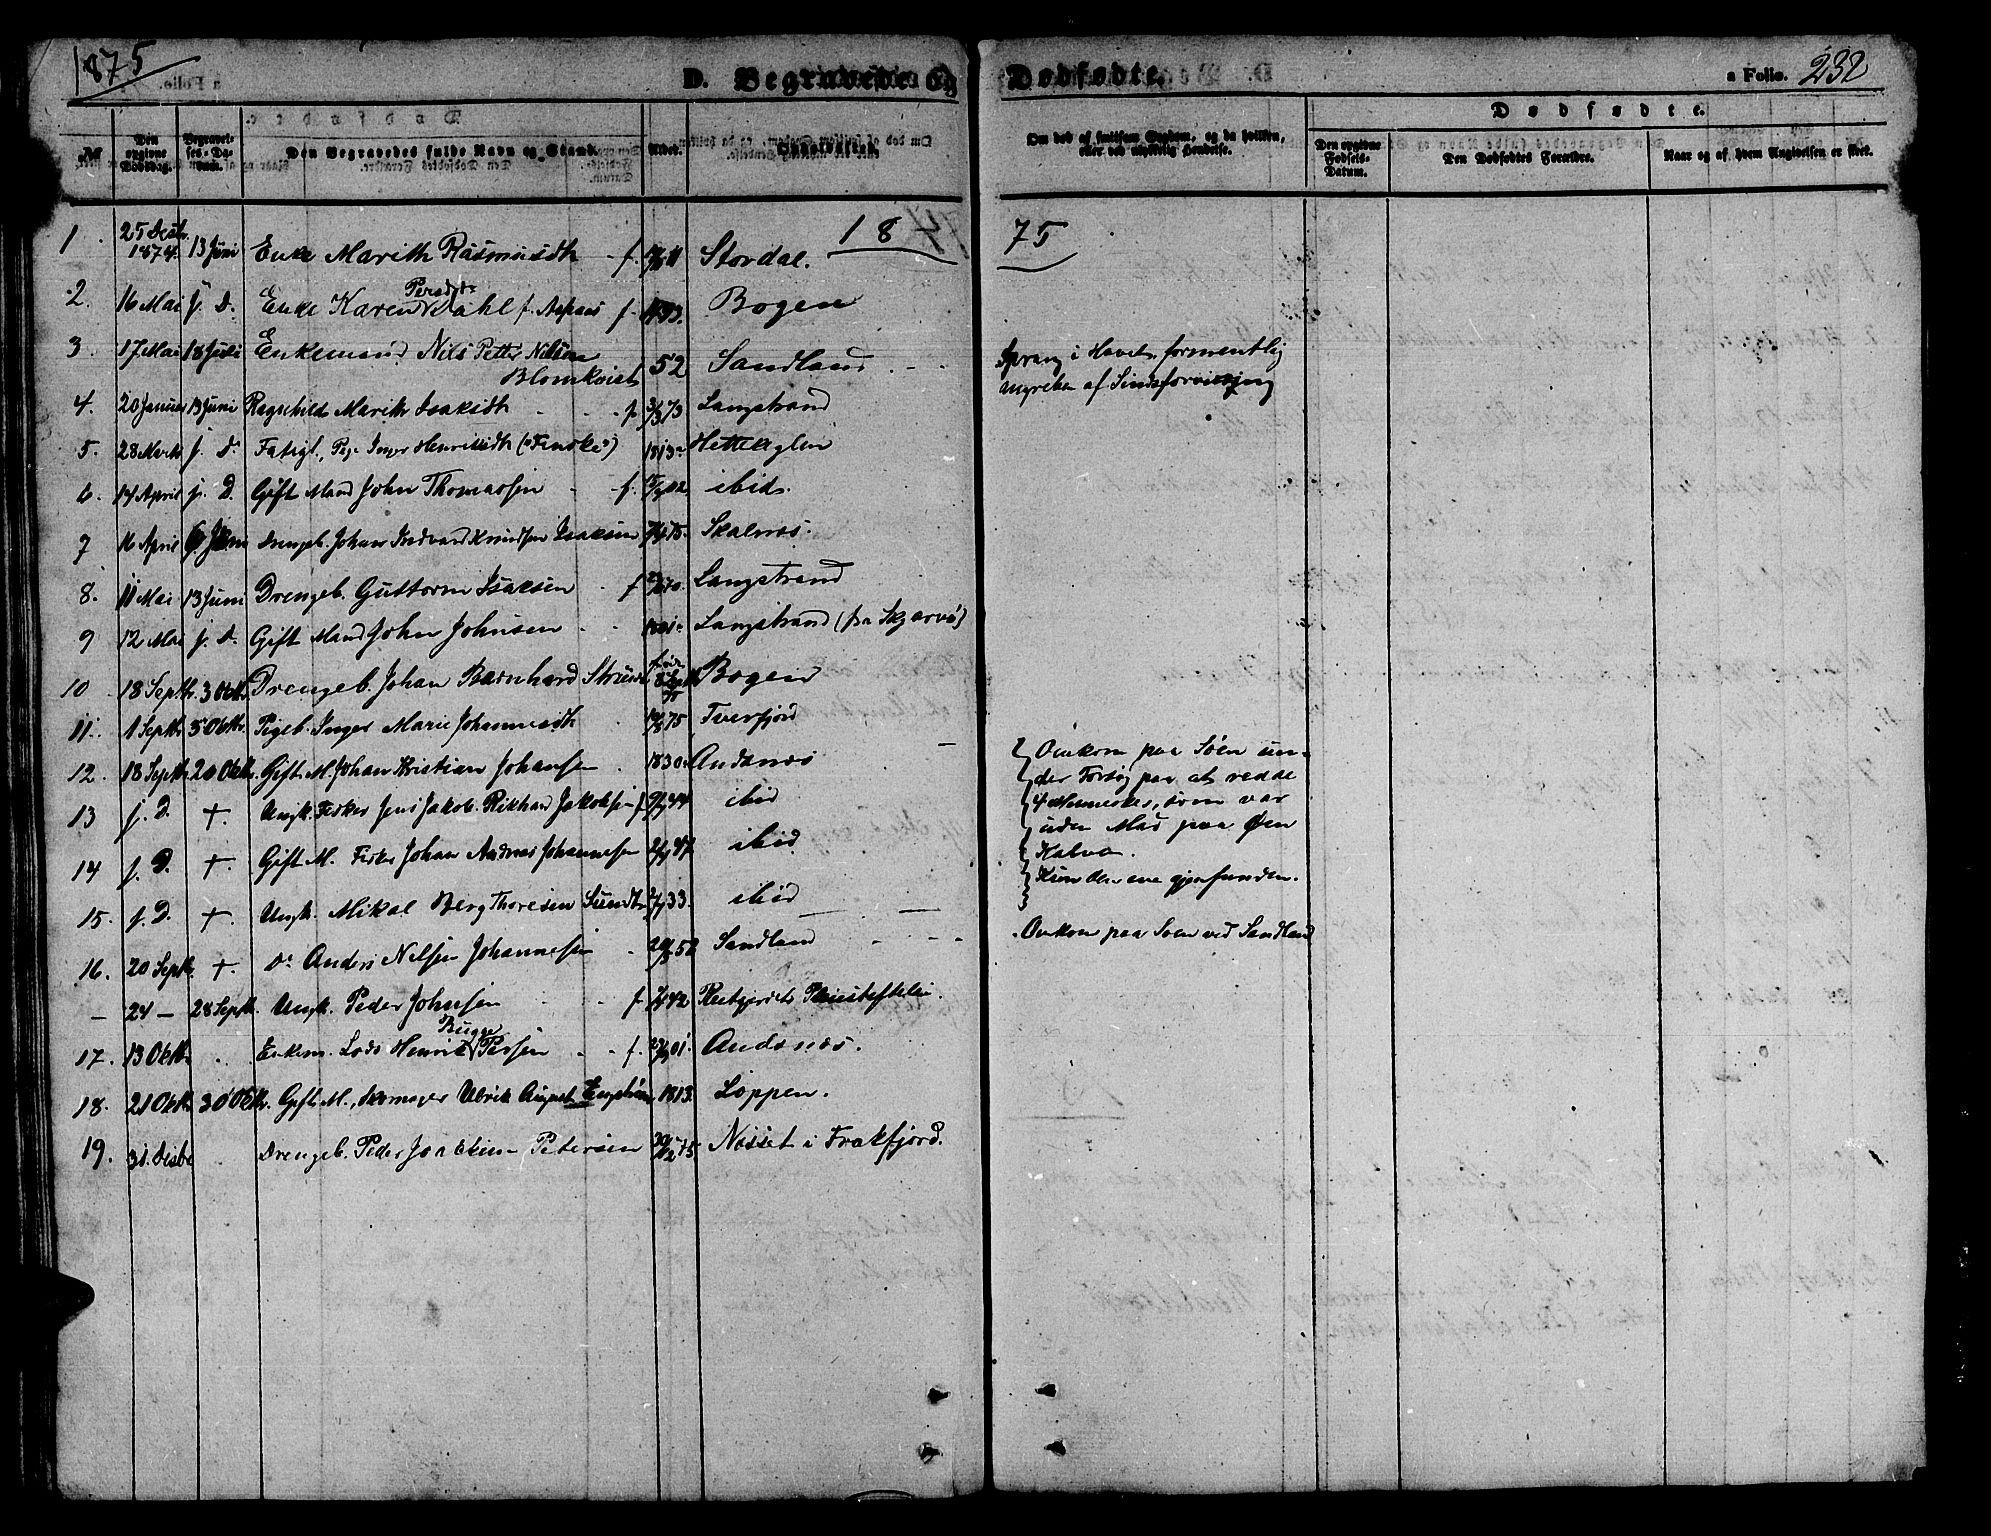 1875
D. Begravede og Dødfødte.
a Folio. 232
Dødfødte.
№
Den opgivne Dødsdag.
Begravelses-Datum.
Den Begravedes fulde Navn og Stand.
Alder.
Opholdssted.
Om død af smitsom Sygdom, og da hvilken, eller ved ulykkelig Hændelse.
Den opgivne Fødsels-Datum.
Den Dødfødtes Forældre.
Naar og af hvem Angivelsen er skeet.
18 75
1 25 Decbr. 1874. 13 Juni Enke Marith Rasmusdtr - f. Stordal.
2. 16 Mai s. D. Enke Karen Persdtr Dahl f. Aspaas f. Bogen
3. 17 Mai 18 Juli Enkemand Nils Petter Nilsen Blomkvist 52 Sandland
Sprang i Havet, formentlig
angreben af Sindsforvirring
4. 20 Januar 13 Juni Ragnhild Marith Isaksdtr - f. 73 Langstrand
5. 28 Marts s. D. Fattigl., Pige Inger Henriksdtr ("Finske") 1813 Hetteglen
6. 14 April s. D. Gift Mand John Thomassen - f. 02 ibid.
7 16 April Juni Drengeb. Johan Knudsen Isaksen 75. Skalnæs.
8. 11 Mai 13 Juni Drengeb. Guttorm Isaksen - f 70. Langstrand
9 12 Mai s. D. Gift Mand John Johnsen - Langstrand (fra Skjærvø)
10 18 Septbr. 3 Oktbr. Drengeb. Johan Bernhard Bogen
11. 1 Septbr 5 Oktbr. Pigeb. Inger Marie Johannesdtr 75 Tverfjord
12. 18 Septbr. 20 Oktbr. Gift M. Johan Kristian Johansen 1830 Andsnæs
Omkom paa Søen un-
der Forsøg paa at redde
4 Mennesker, som var
uden Mad paa Øen
Kalven.
Kun den ene gjenfunden.
13 s. D. †. Ungk. Fisker Jens Jakob Rikhard Jakobsen f 44 ibid
14 s. D. †. Gift M. Fisker Johan Andreas Johannesen 47 ibid
15. s. D. † Ungk. Mikal Berg Thoresen Sundt 33. ibid
16. 20 Septbr. †. Do Anders Nilsen Johannesen - 52 Sandland
Omkom paa Søen ved Sandland
— 24 — 28 Septbr. Ungk. Peder Johnsen - f 42
17. 13 Oktbr. Enkem. Lods Henrik Bugge Persen - - f. 01. Andsnæs.
18. 21 Oktbr 30 Oktbr. Gift M., Skomager Ulrik August Engstrøm 1813. Loppen.
19. 31. Decbr Drengeb. Peder Joakim Petersen 75 Næsset i Frakfjord.